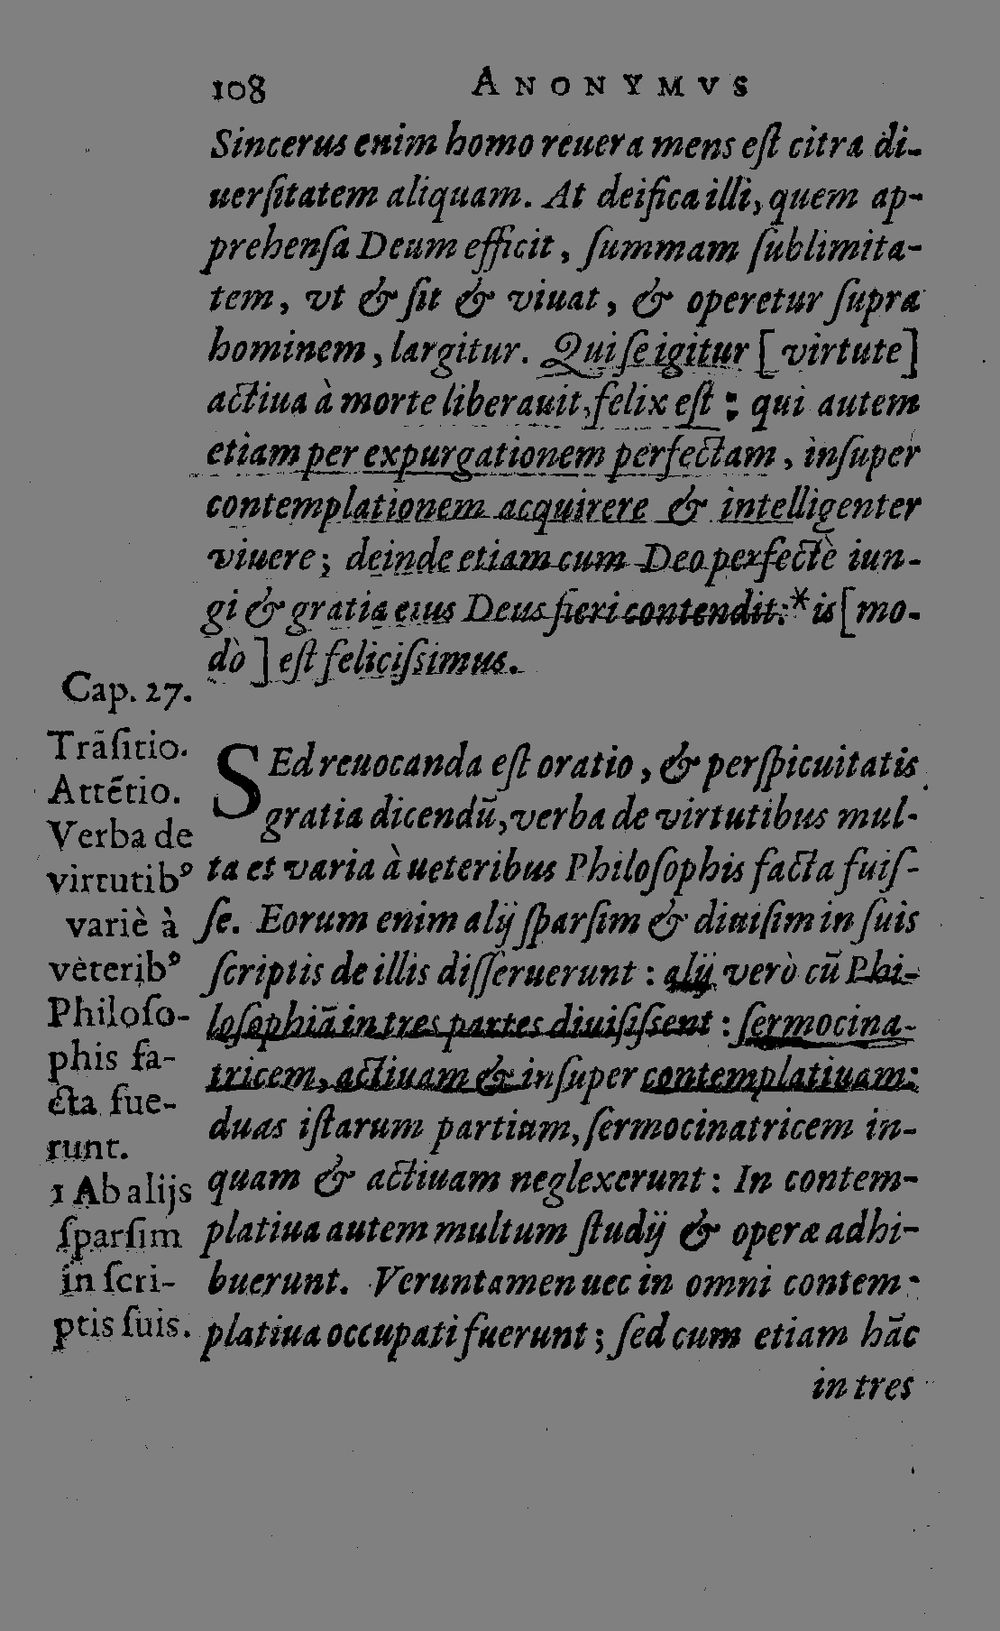 108 ANONYMVS
Sincerus enim homo reuera mens eſt citra di-
uerſitatem aliquam. At deifica illi, quem ap-
prehenſa Deum efficit, ſummam ſublimita-
tem, vt & ſit & viuat, & operetur ſupra
hominem, largitur. Qui ſe igitur [ virtute]
actiua à morte liberauit, felix eſt : qui autem
etiam per expurgationem perfectam, inſuper
contemplationem acquirere & intelligenter
viuere; deinde etiam cum Deo perfectè iun-
gi & gratia eius Deus fieri contendit:* is [mo-
dò ] eſt feliciſsimus.
Cap. 27.
Trãſitio.
Attẽtio.
Verba de
virtutibꝰ
variè à
veteribꝰ
Philoſo-
phis fa-
cta fue-
runt.
1 Ab alijs
ſparſim
in ſcri-
ptis ſuis.
SEd reuocanda eſt oratio, & perſpicuitatis
gratia dicendũ, verba de virtutibus mul-
ta et varia à ueteribus Philoſophis facta fuiſ-
ſe. Eorum enim alij ſparſim & diuiſim in ſuis
ſcriptis de illis diſſeruerunt : alij verò cũ Phi-
loſophiã in tres partes diuiſiſſent : ſermocina-
tricem, actiuam & inſuper contemplatiuam:
duas iſtarum partium, ſermocinatricem in-
quam & actiuam neglexerunt : In contem-
platiua autem multum ſtudij & operæ adhi-
buerunt. Veruntamen uec in omni contem-
platiua occupati fuerunt ; ſed cum etiam hãc
in tres